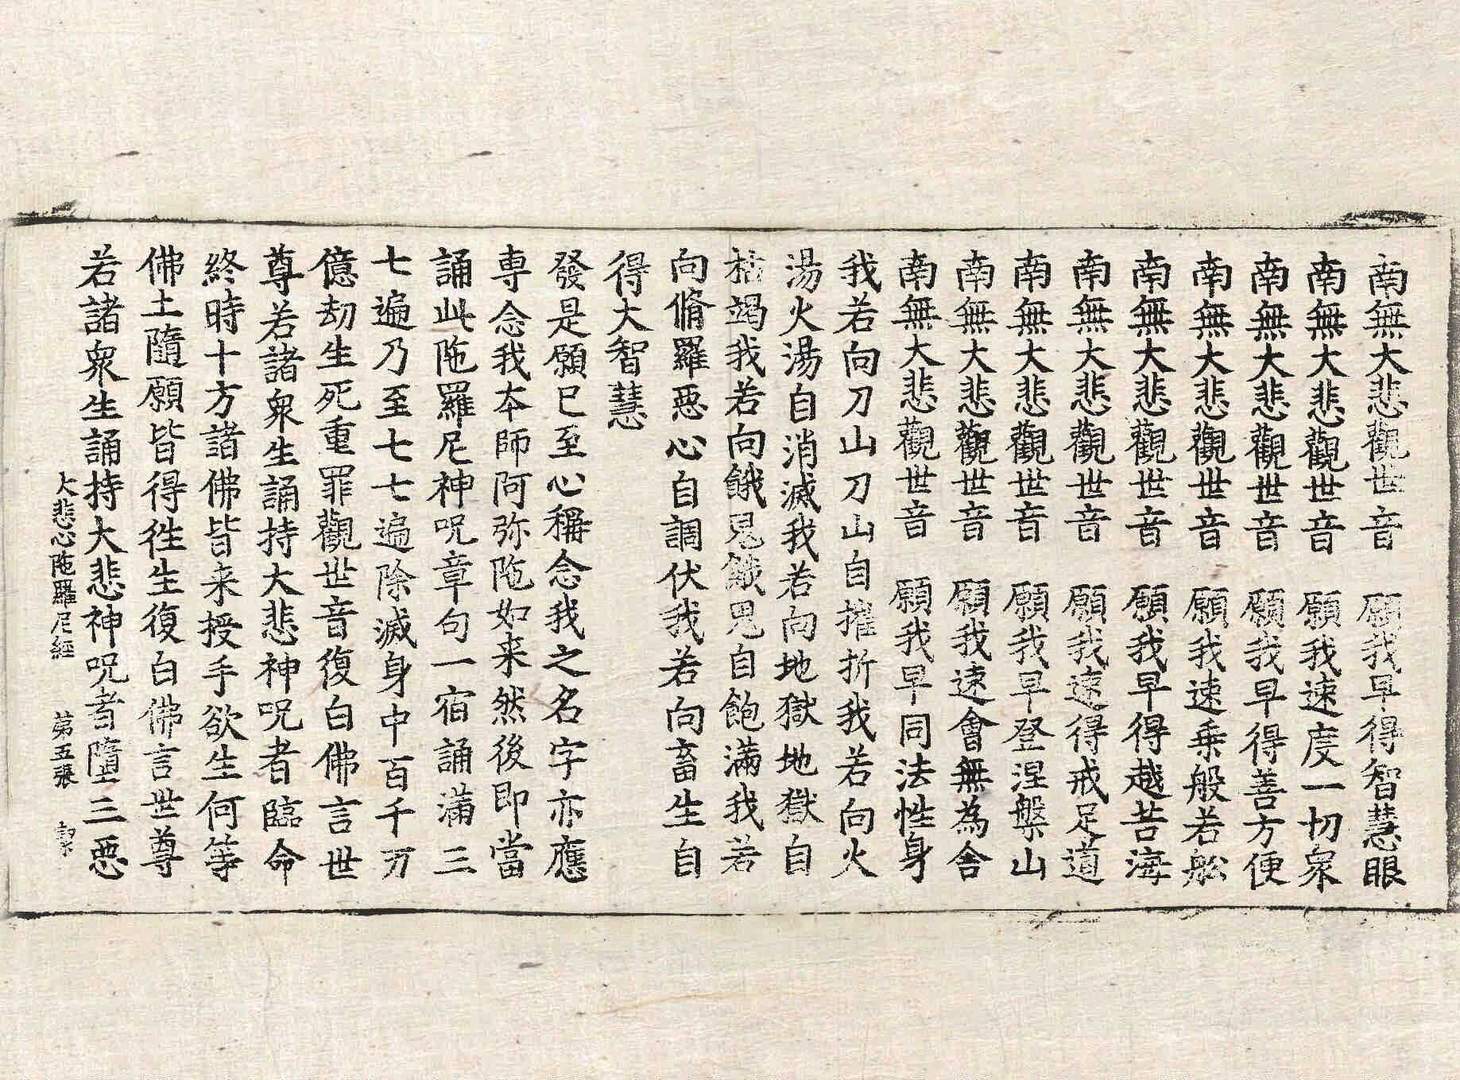 南無大悲觀世音 願我早得智慧眼
南無大悲觀世音 願我速度一切衆
南無大悲觀世音 願我早得善方便
南無大悲觀世音 願我速乗般若舩
南無大悲觀世音 願我早得越苦海
南無大悲觀世音 願我速得戒足道
南無大悲觀世音 願我早登涅槃山
南無大悲觀世音 願我速會無為舎
南無大悲觀世音 願我早同法性身
我若向刀山刀山自摧折我若向火
湯火湯自消滅我若向地獄地獄自
枯竭我若向餓鬼餓鬼自飽滿我若
向脩羅惡心自調伏我若向畜生自
得大智慧
發是願已至心稱念我之名字亦應
専念我本師阿弥陁如来然後即當
誦此陁羅尼神呪章句一宿誦滿三
七遍乃至七七遍除滅身中百千万
億劫生死重罪觀世音復白佛言世
尊若諸衆生誦持大悲神呪者臨命
終時十方諸佛皆来授手欲生何等
佛土隨願皆得徃生復白佛言世尊
若諸衆生誦持大悲神呪者墮三惡
大悲心陁羅尼經 第五張